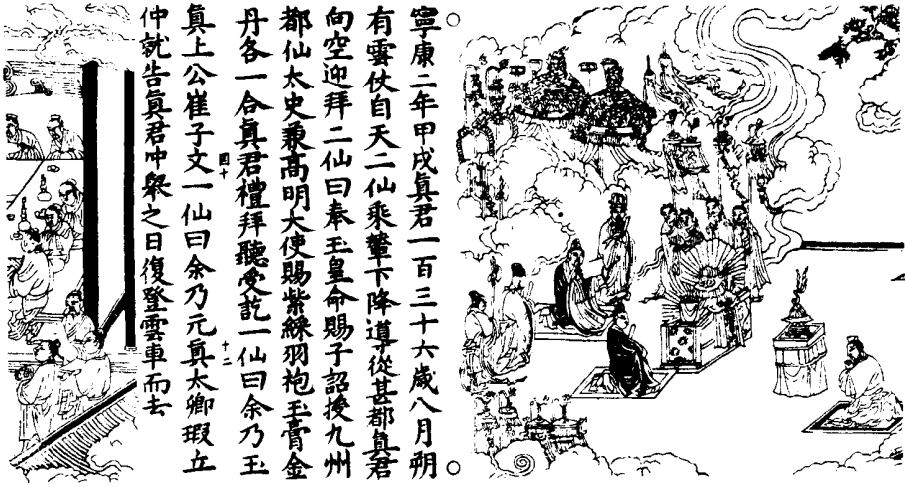 寧康二年甲戌真君一百三十六歲八月朔
有雲仗自天二仙乘輦下降導從甚都真君
向空迎拜二仙曰奉玉皇命賜子詔授九州
都仙太史兼高明大使賜紫綵羽袍玉膏金
丹各一合真君禮拜聽受訖一仙曰余乃玉
真上公崔子文一仙曰余乃元真太卿瑕丘
仲就告真君冲舉之日復登雲車而去
四十
十二